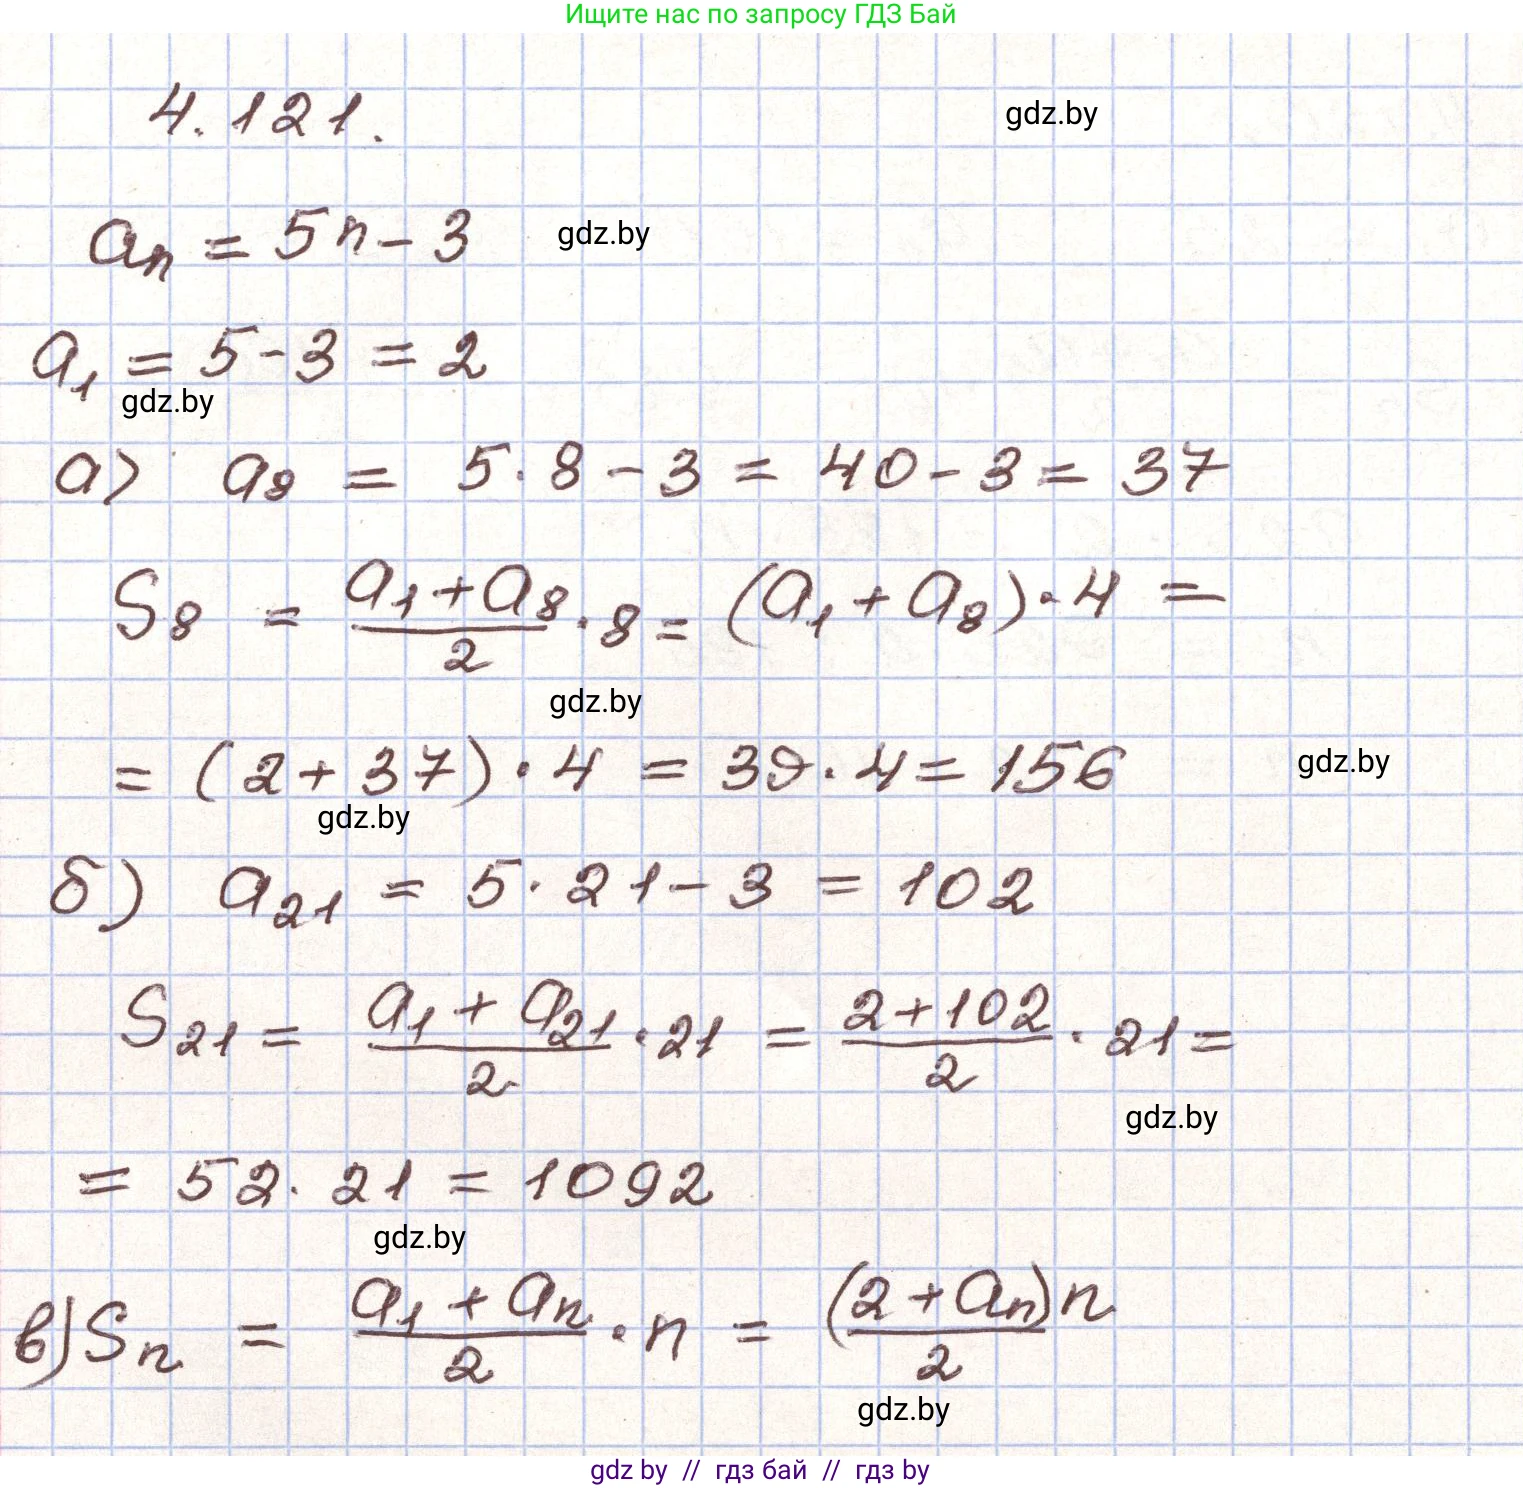 Ищите нас по запросу ГДЗ Бай
4.121.
gdz.by
aₙ = 5n - 3
gdz.by
a₁ = 5 - 3 = 2
gdz.by
а) a₈ = 5·8 - 3 = 40 - 3 = 37
S₈ = (a₁ + a₈)/2 · 8 = (a₁ + a₈)·4 =
gdz.by
= (2 + 37)·4 = 39·4 = 156
gdz.by
gdz.by
б) a₂₁ = 5·21 - 3 = 102
S₂₁ = (a₁ + a₂₁)/2 · 21 = (2 + 102)/2 · 21 =
gdz.by
= 52·21 = 1092
gdz.by
в) Sₙ = (a₁ + aₙ)/2 · n = (2 + aₙ)n/2
gdz.by
gdz by // гдз бай // гдз by